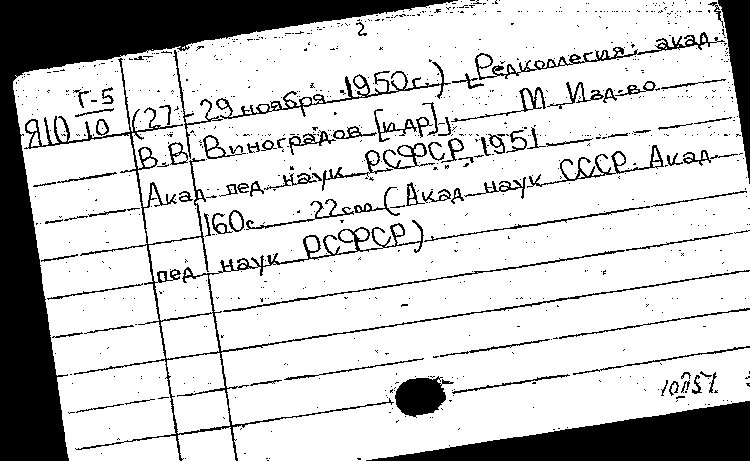 2
Т-5
Я10 10
(27-29 ноября 1950г.) [Редколлегия: акад.
В.В. Виноградов [и др.]]. М., Изд-во
Акад. пед. наук РСФСР, 1951
160с. 22см (Акад. наук СССР. Акад.
пед. наук РСФСР).